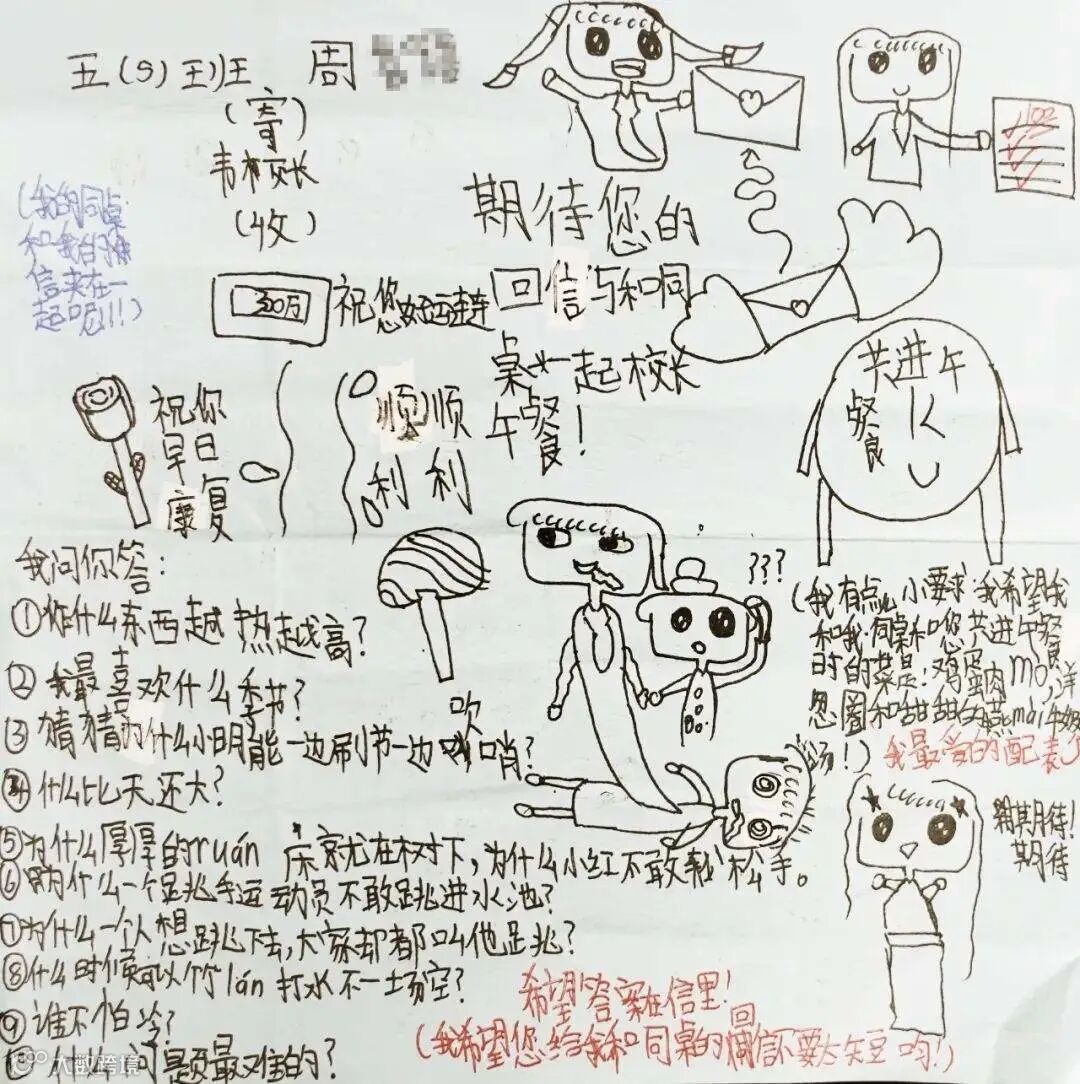 五(9)班 周
(寄)
韦校长
(收)
(我的同桌
和我的
信夹在一
起呢!!!)
100
期待您的
回信与和同
桌一起校长
午餐!
300万
祝您好运连连
祝你
早日
康复
顺顺
利利
共进午
餐
我问你答:
①什么东西越热越高?
②我最喜欢什么季节?
③猜猜为什么小明能一边刷牙一边吹哨?
④什么比天还大?
⑤为什么厚厚的ruán床就在树下,为什么小红不敢轻松手。
⑥为什么一个跳水运动员不敢跳进水池?
⑦为什么一个人想跳下去,大家却都叫他跳?
⑧什么时候可以竹lán打水不一场空?
⑨谁不怕冷?
⑩什么问题最难的?
???
(我有点小要求:我希望我
和我同桌和您共进午餐
时的菜是:鸡蛋肉mó,洋
葱圈和甜甜的燕mài牛奶
汤!)
我最爱的配表
期期待!
期待
希望答案在信里!
(我希望您给我和同桌的回信不要太短哟!)
大数跨境